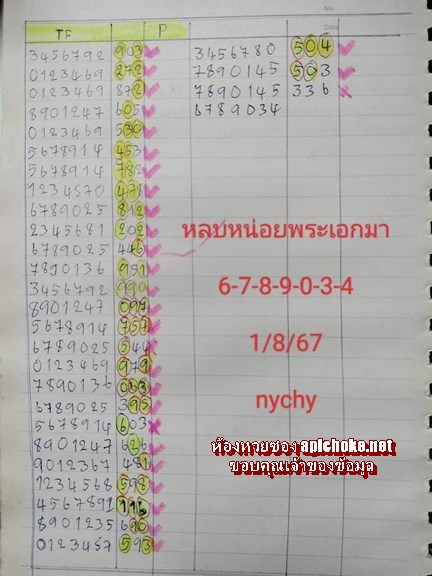 No.
Date
TF P
3456792 903
0123469 272
0123469 872
8901247 605
0123469 530
5678914 453
5678914 782
1234570 471
6789025 812
2345681 202
6789025 446
7890136 951
3456792 990
8901247 097
5678914 757
6789025 544
0123469 979
7890136 063
6789025 395
5678914 603
8901247 626
9012367 481
1234568 598
4567891 116
8901235 690
0123457 593
3456780 504
7890145 503
7890145 336
6789034
หลบหน่อยพระเอกมา
6-7-8-9-0-3-4
1/8/67
nychy
ห้องหวยซอง apichoke.net
ขอบคุณเจ้าของข้อมูล